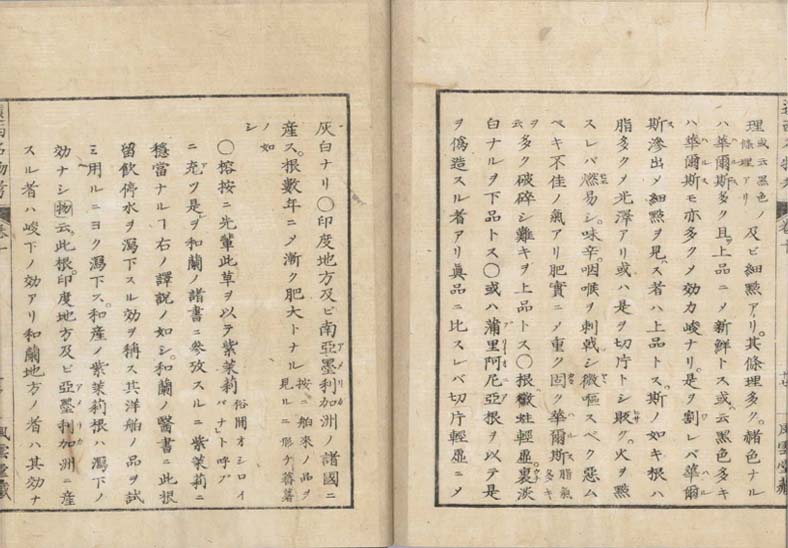 理或云黒色ノ條理アリ及ビ細㸃アリ。其條理多ク。褚色ナル
ハ華爾斯多ク且ツ上品ニメ新鮮トス或云黒色多キ
ハ華爾斯モ亦多クメ効力峻ナリ。是ヲ割レバ華爾
斯滲出メ細㸃ヲ見ス者ハ上品トス。斯ノ如キ根ハ
脂多クメ光澤アリ或ハ是ヲ切片トシ販ク。火ヲ㸃
スレバ燃易シ。味辛。咽喉ヲ刺戟シ微嘔スベク惡ム
ベキ不佳ノ氣アリ肥實ニメ重ク固ク華爾斯脂氣多キ
ヲ云多ク破碎シ難キヲ上品トス〇根黴蛀輕虚裏淡
白ナルヲ下品トス〇或ハ蒲里阿尼亞根ヲ以テ是
ヲ僞造スル者アリ眞品ニ比スレバ切片輕虚ニメ
風雲堂藏
灰白ナリ〇印度地方及ビ南亞墨利加洲ノ諸國ニ
産ス。根數年ニメ漸ク肥大トナル按ニ舶來ノ品ヲ見ルニ形チ蕃藷
ノ如シ
〇榕按ニ先輩此草ヲ以テ紫茉莉俗間オシロイバナト呼ブ
ニ充ツ是ヲ和蘭ノ諸書ニ參攷スルニ紫茉莉ニ
穏當ナルヿ右ノ譯説ノ如シ。和蘭ノ醫書ニ此根
留飲停水ヲ瀉下スル効ヲ稱ス其洋舶ノ品ヲ試
ミ用ルニヨク瀉下ス。和産ノ紫茉莉根ハ瀉下ノ
効ナシ物云。此根。印度地方及ビ亞墨利加洲ニ産
スル者ハ峻下ノ効アリ和蘭地方ノ者ハ其効ナ
遠西名物考 卷十 風雲堂藏